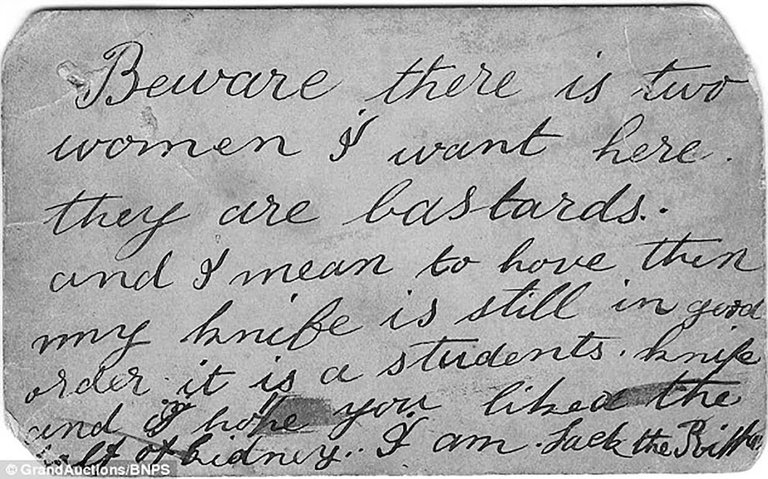 Beware there is two
women I want here.
they are bastards..
and I mean to hove then
my knife is still in good
order it is a students. knife
and I hope you liked the
half of kidney.. I am Jack the Ripper
© GrandAuctions/BNPS